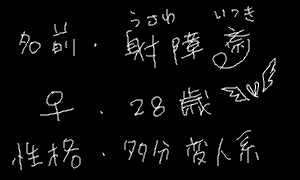 うさわ いつき
名前・射障斎
♀・28歳
性格・多分変人系